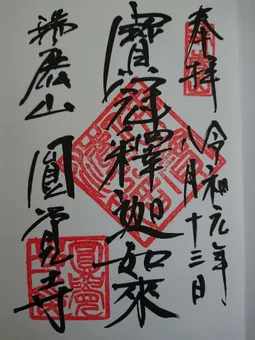 奉拝
令和元年
八月十三日
寶冠釋迦如來
瑞鹿山
圓覺寺